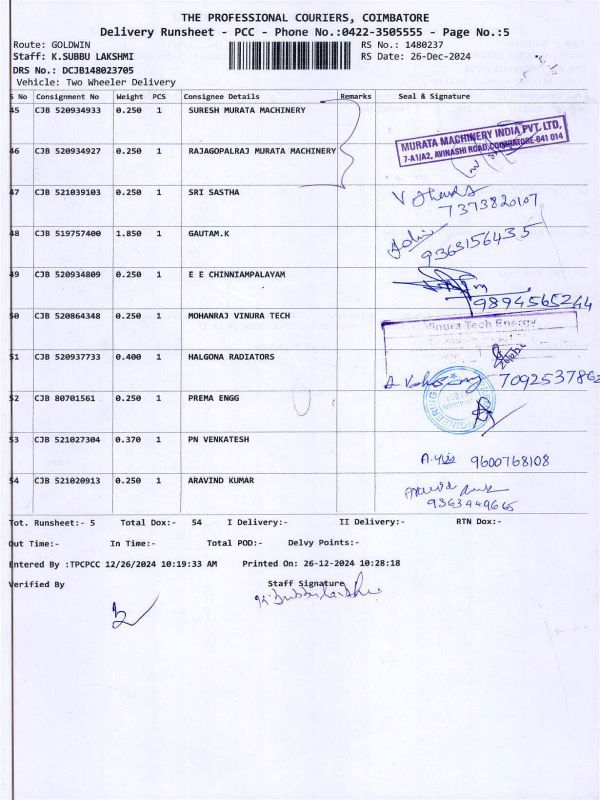 THE PROFESSIONAL COURIERS, COIMBATORE
Delivery Runsheet - PCC - Phone No.:0422-3505555 - Page No.:5
Route: GOLDWIN RS No.: 1480237
Staff: K.SUBBU LAKSHMI RS Date: 26-Dec-2024
DRS No.: DCJB148023705
Vehicle: Two Wheeler Delivery
S No Consignment No Weight PCS Consignee Details Remarks Seal & Signature
45 CJB 520934933 0.250 1 SURESH MURATA MACHINERY
MURATA MACHINERY INDIA PVT. LTD,
7-A1/A2, AVINASHI ROAD, COIMBATORE-641 014
46 CJB 520934927 0.250 1 RAJAGOPALRAJ MURATA MACHINERY
47 CJB 521039103 0.250 1 SRI SASTHA
7373820107
48 CJB 519757400 1.850 1 GAUTAM.K
9363156435
49 CJB 520934809 0.250 1 E E CHINNIAMPALAYAM
9894565244
50 CJB 520864348 0.250 1 MOHANRAJ VINURA TECH
Vinura Tech Energy
51 CJB 520937733 0.400 1 HALGONA RADIATORS
7092537862
52 CJB 80701561 0.250 1 PREMA ENGG
53 CJB 521027304 0.370 1 PN VENKATESH
9600768108
54 CJB 521020913 0.250 1 ARAVIND KUMAR
9363449665
Tot. Runsheet:- 5 Total Dox:- 54 I Delivery:- II Delivery:- RTN Dox:-
Out Time:- In Time:- Total POD:- Delvy Points:-
Entered By :TPCPCC 12/26/2024 10:19:33 AM Printed On: 26-12-2024 10:28:18
Verified By Staff Signature